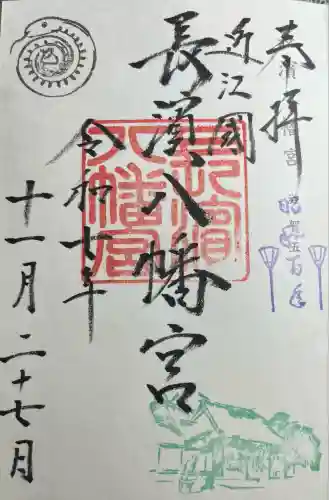 奉拝
近江國
長濱八幡宮
令和七年
十一月二十七日
長濱
八幡宮